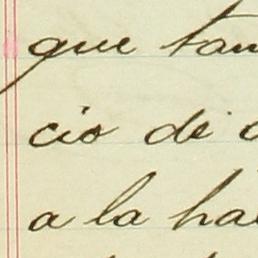 que tam
cio de
a la ha